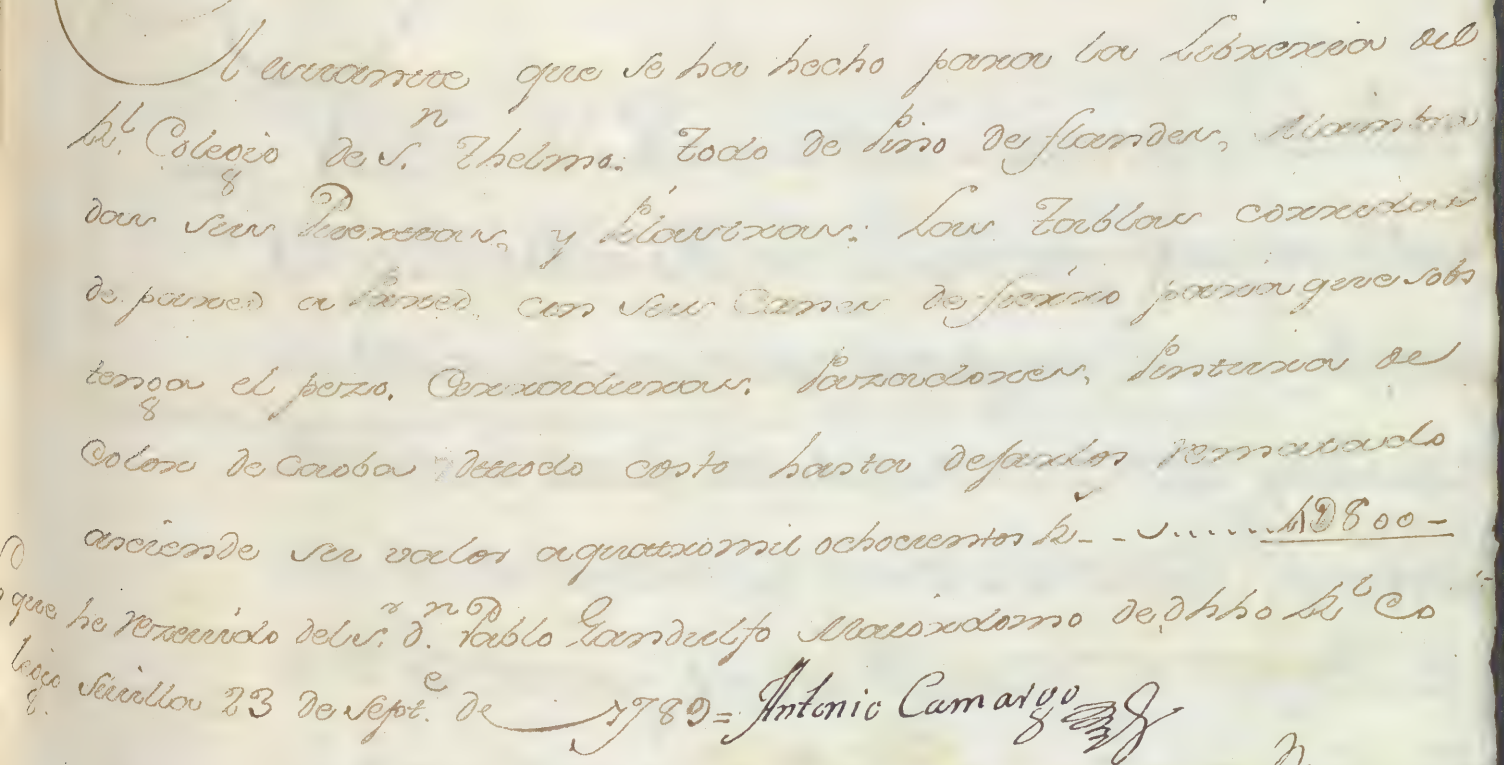 que se ha hecho para la Libreria del
Rl. Colegio de Sn. Thelmo: Todo de Pino de flandes,
das sus Puertas, y Pilastras: Las Tablas corridas
de pared a Pared, con sus Canes de fierro para que sobs
tenga el pezo. Cerraduras. Pazadores, Pintura de
Color de Caoba detodo costo hasta dejarlos rematado
asciende su valor a quatromil ochocientos R- - 4D800-
que he rezeuido del Sr. Dn. Pablo Gandulfo Maiordomo de dhho Rl Co
legio Seuilla 23 de Septe. de 1789= Antonio Camargo